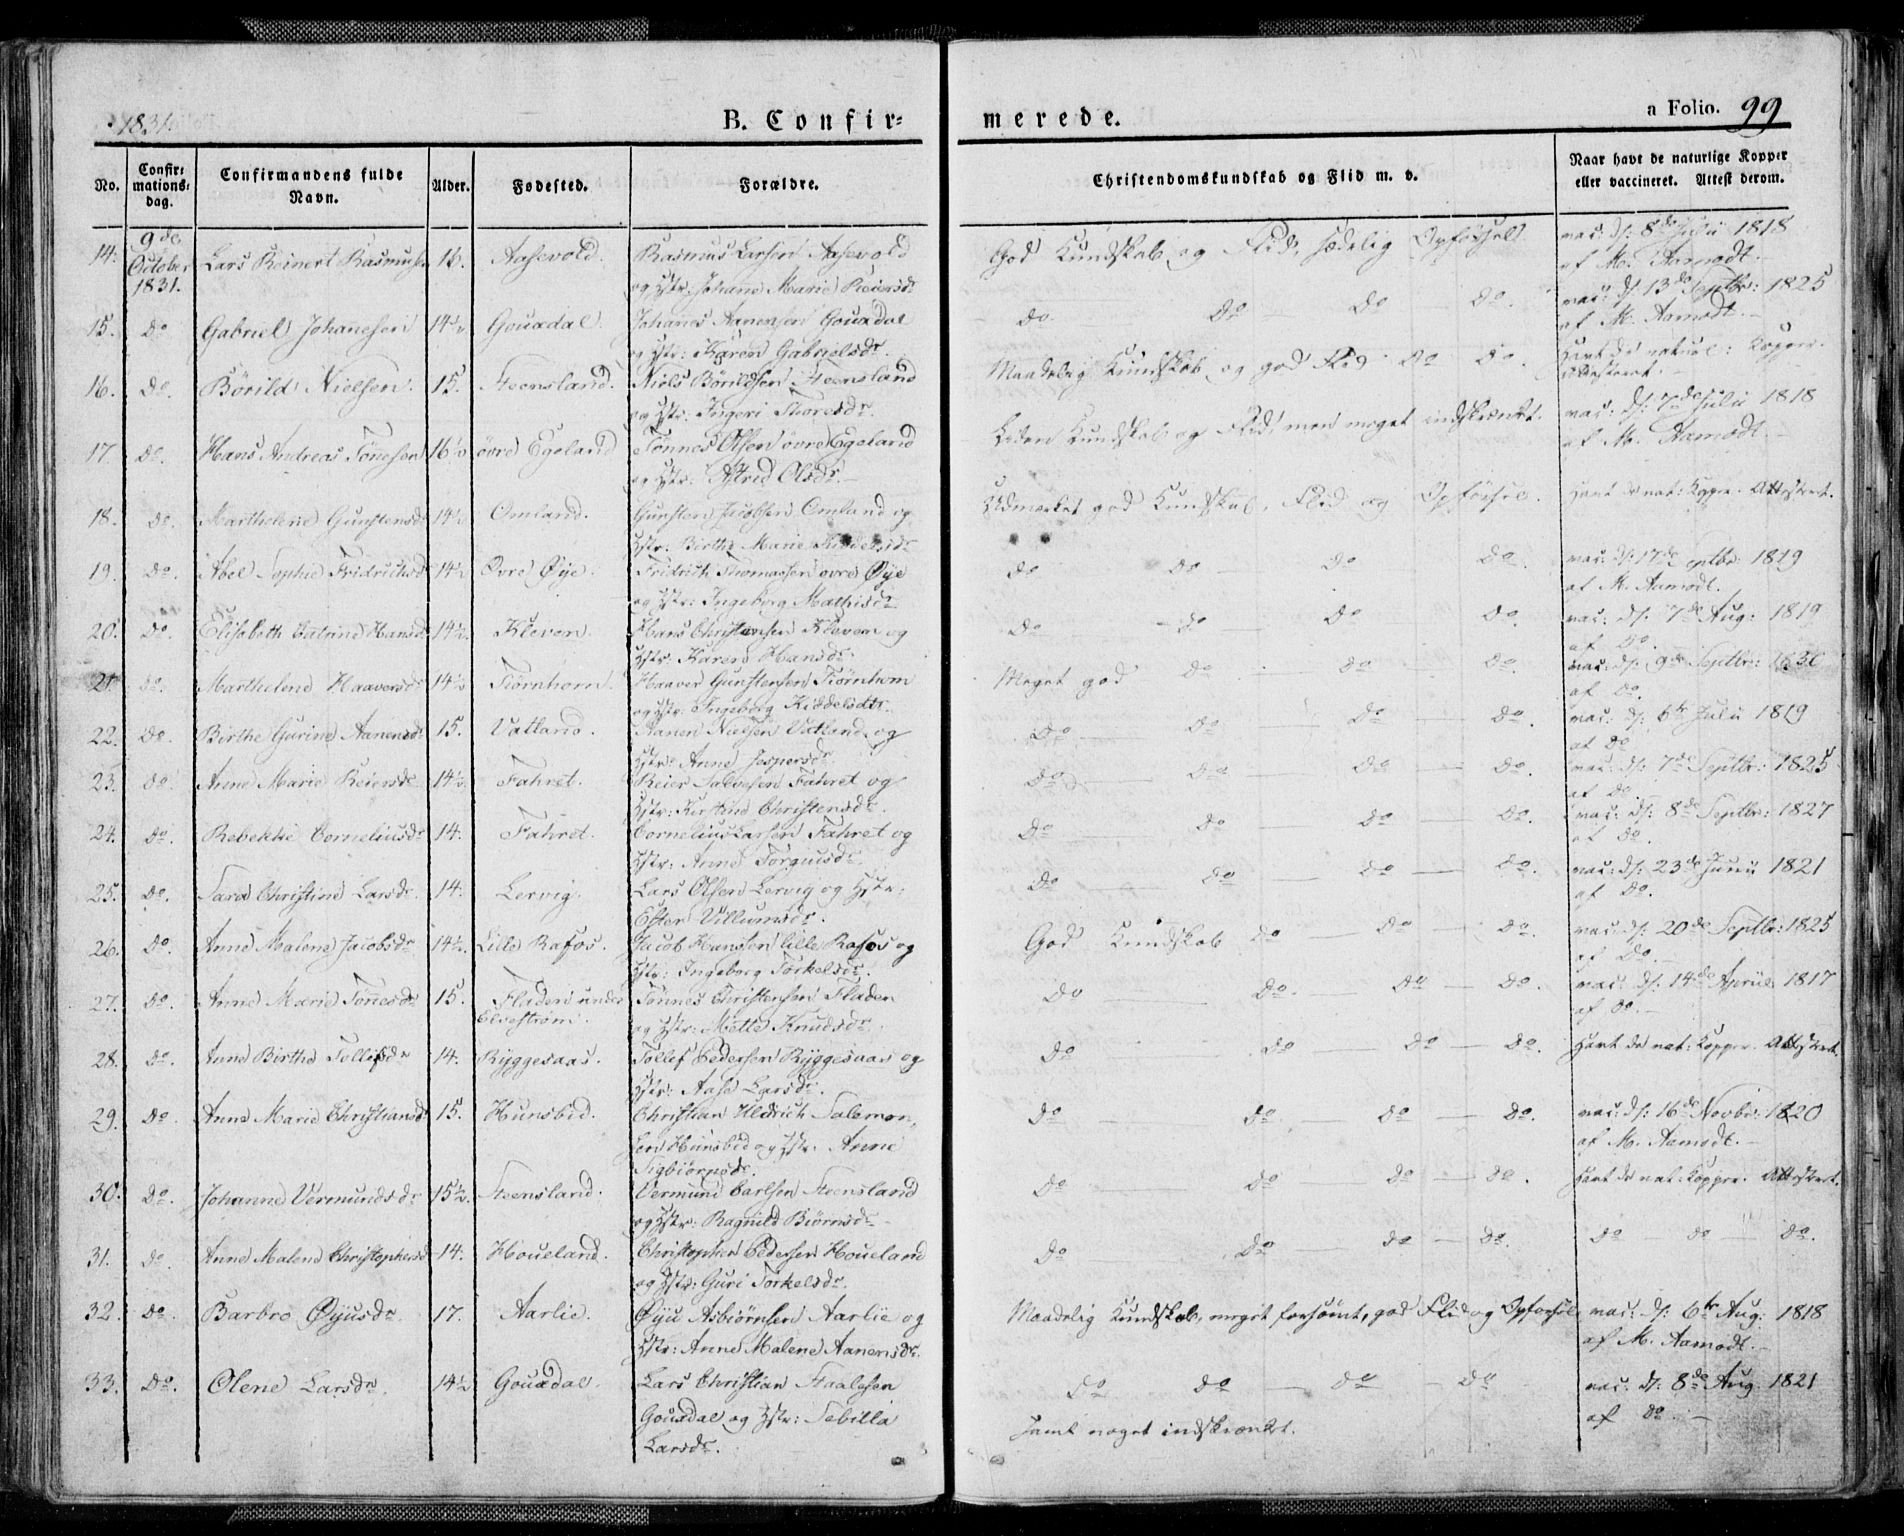 1831.
B. Confir-
merede.
a Folio. 99
No.
Confir-
mations-
dag.
Confirmandens fulde
Navn.
Alder.
Fødested.
Forældre.
Christendomskundskab og Flid m. v.
Naar havt de naturlige Kopper
eller vaccineret. Attest derom.
14. 9de October 1831. Lars Reinert Rasmusen 16. Aasevold. Rasmus Larsen Aasevold
og Hstr: Johane Marie Reiersdr
God Kundskab og Flid, sædelig Opførsel
vac: d: 8de Julii 1818
af M. Aamodt.
15. Do Gabriel Johanesen 14½ Gouadal. Johanes Aanensen Gouadal
og Hstr: Karen Gabrielsdr.
Do Do Do Do.
vac: d: 13de Septbr: 1825
af M. Aamodt.
16. Do. Börild Nielsen. 15. Steensland. Niels Börildsen Steensland
og Hstr: Ingeri Thoresdr.
Maadelig Kundskab og god Flid Do Do.
Havt de naturl: Kopper.
Attesteret.
17. Do. Hans Andreas Tönesen 16½ övre Egeland Tönnes Olsen övre Egeland
og Hstr: Astrid Olsdr.
Liden Kundskab og Flid, men meget indskrænket.
vac: d: 7de Julii 1818
af M. Aamodt.
18. Do. Marthelene Gunstensdr 14½ Omland. Gunsten Jacobsen Omland og
Hstr: Birthe Marie Kiddelsdr
Udmærket god Kundskab, Flid og Opførsel.
Havt de nat: Kopper. Attesteret.
19. Do. Abel Sophie Fridrichsdr 14½ Øvre Øye. Fridrich Thomassen øvre Øye
og Hstr: Ingeborg Mathisdr
Do Do Do Do.
vac: d: 17de Septbr: 1819
af M. Aamodt.
20. Do. Elisabeth Catrine Hansdr 14½. Kleven. Hans Christensen Kleven og
Hstr: Karen Hansdr
Do Do Do Do.
vac: d: 7de Aug: 1819
af Do.
21. Do. Marthelene Haaversdr 14½ Tiørnhom. Haaver Gunstensen Tiørnhom
og Hstr: Ingeborg Kiddelsdtr.
Meget god Do Do Do.
vac: d: 9de Septbr: 1830
af Do.
22. Do. Birthe Gurine Aanensdr 15. Vatland. Aanen Nielsen Vatland og
Hstr: Anne Jespersdr
Do Do Do Do.
vac: d: 6te Julii 1819
af Do
23. Do. Anne Marie Reiersdr 14½. Fahret. Reier Salvesen Fahret og
Hstr: Kirstine Christensdr.
Do Do Do Do.
vac: d: 7de Septbr: 1825
af Do
24. Do. Rebekke Corneliusdr 14. Fahret. Cornelius Larsen Fahret og
Hstr: Anne Torgiusdr.
Do Do Do Do.
vac: d: 8de Septbr: 1827
af Do.
25. Do. Sara Christine Larsdr. 14. Lervig. Lars Olsen Lervig og Hstr:
Ester Villumsdr.
Do Do Do Do.
vac: d: 23de Junii 1821
af Do.
26. Do. Anne Malene Jacobsdr 14½. Lille Rafos. Jacob Hansen lille Rafos og
Hstr: Ingeborg Torkelsdr.
God Kundskab Do Do Do.
vac: d: 20de Septbr: 1825
af Do.
27. Do. Anne Marie Tönesdr 15. Fladen under
Elvestrøm. Tönnes Christensen Fladen
og Hstr: Mette Knudsdr.
Do Do. Do Do.
vac: d: 14de Apriil 1817
af Do.
28. Do. Anne Birthe Tollefsdr 14. Ryggesaas. Tollef Pedersen Ryggesaas og
Hstr: Aase Larsdr.
Do Do Do Do.
Havt de nat: Kopper. Attesteret.
29. Do. Anne Marie Christiansdr 15. Hunsbed. Christian Uldrich Salomon-
sen Hunsbed og Hstr: Anne
Sigbiørnsdr.
Do Do. Do Do.
vac: d: 16de Novbr: 1820
af M. Aamodt.
30. Do. Johanne Vermundsdr 15½. Steensland. Vermund Carlsen Steensland
og Hstr: Ragnild Biörnsdr
Do Do Do Do.
Havt de nat: Kopper. Attesteret.
31. Do. Anne Malene Christophersdr 14. Houeland. Christopher Pedersen Houeland
og Hstr: Guri Torkelsdr.
Do Do Do Do.
Do Do Do.
32. Do. Barbro Øyusdr. 17. Aarlie. Øyu Asbiörnsen Aarlie og
Hstr: Anne Malene Aanensdr.
Maadelig Kundskab, meget forsømt, god Flid og Opførsel
vac: d: 6te Aug: 1818
af M. Aamodt.
33. Do. Olene Larsdr. 14½ Gouadal. Lars Christian Staalesen
Gouadal og Hstr: Sebilla
Larsdr.
Do Do Do Do
samt noget indskrænket.
vac: d: 8de Aug. 1821
af Do.